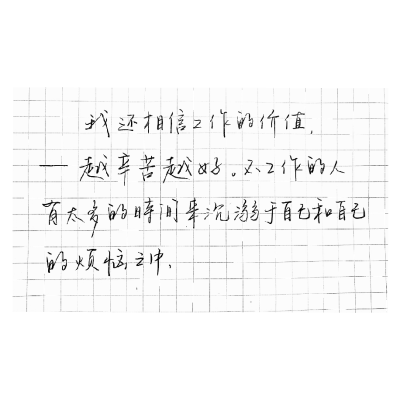 我还相信工作的价值,
— 越辛苦越好。不工作的人
有太多的时间来沉溺于自己和自己
的烦恼之中.